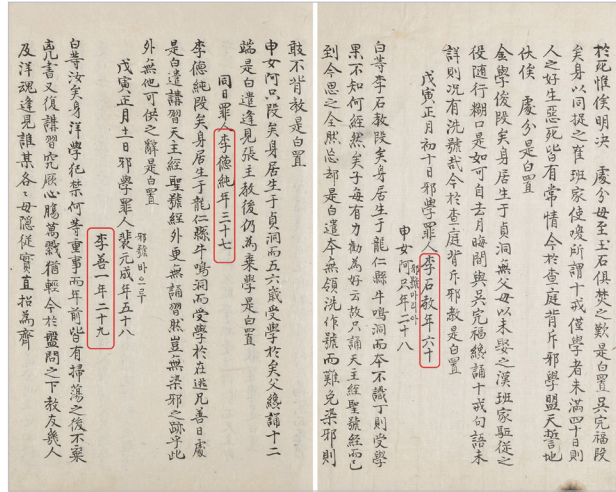 於死惟俟明決 處分毋至玉石俱焚之歎是白置吳完福段
矣身以同捉之崔班家使喚所謂十戒僅學者未滿四十日則
人之好生惡死皆有常情今於查庭背斥邪學盟天誓地
伏俟 處分是白置
金學俊段矣身居生于貞洞無父母以未娶之漢班家驅從之
役隨行糊口是如可自去月晦間與吳完福總誦十戒句語未
詳則況有洗號哉今於查庭背斥邪教是白置
戊寅正月初十日邪學罪人李石敎年六十
邪號바리아
申女阿只年二十八
白等李石敎段矣身居生于龍仁縣牛鳴洞而本不識丁則受學
果不知何經然矣子每有力勸為好云故只誦天主經聖號經而已
到今思之令然忘却是白遣本無領洗作號而難免染邪則
敢不背教是白置
申女阿只段矣身居生于貞洞而五六歲受學於矣父總誦十二
端是白遣逢見張主教後仍為棄學是白置
同日罪人李德純年三十七
李德純段矣身居生于龍仁縣牛鳴洞而受學於在逃凡善日處
是白遣講習天主經聖號經外更無誦習然豈無染邪之跡乎此
外無他可供之辭是白置
戊寅正月十一日邪學罪人裴元成年五十八
邪號바오로
李善一年二十九
白等汝矣身洋學犯禁何等重事而年前皆有掃蕩之後不棄
兇書又復講習究厥心膓萬戮猶輕今於盤問之下教友幾人
及洋魂逢見誰某各各毋隱從實直招為齊